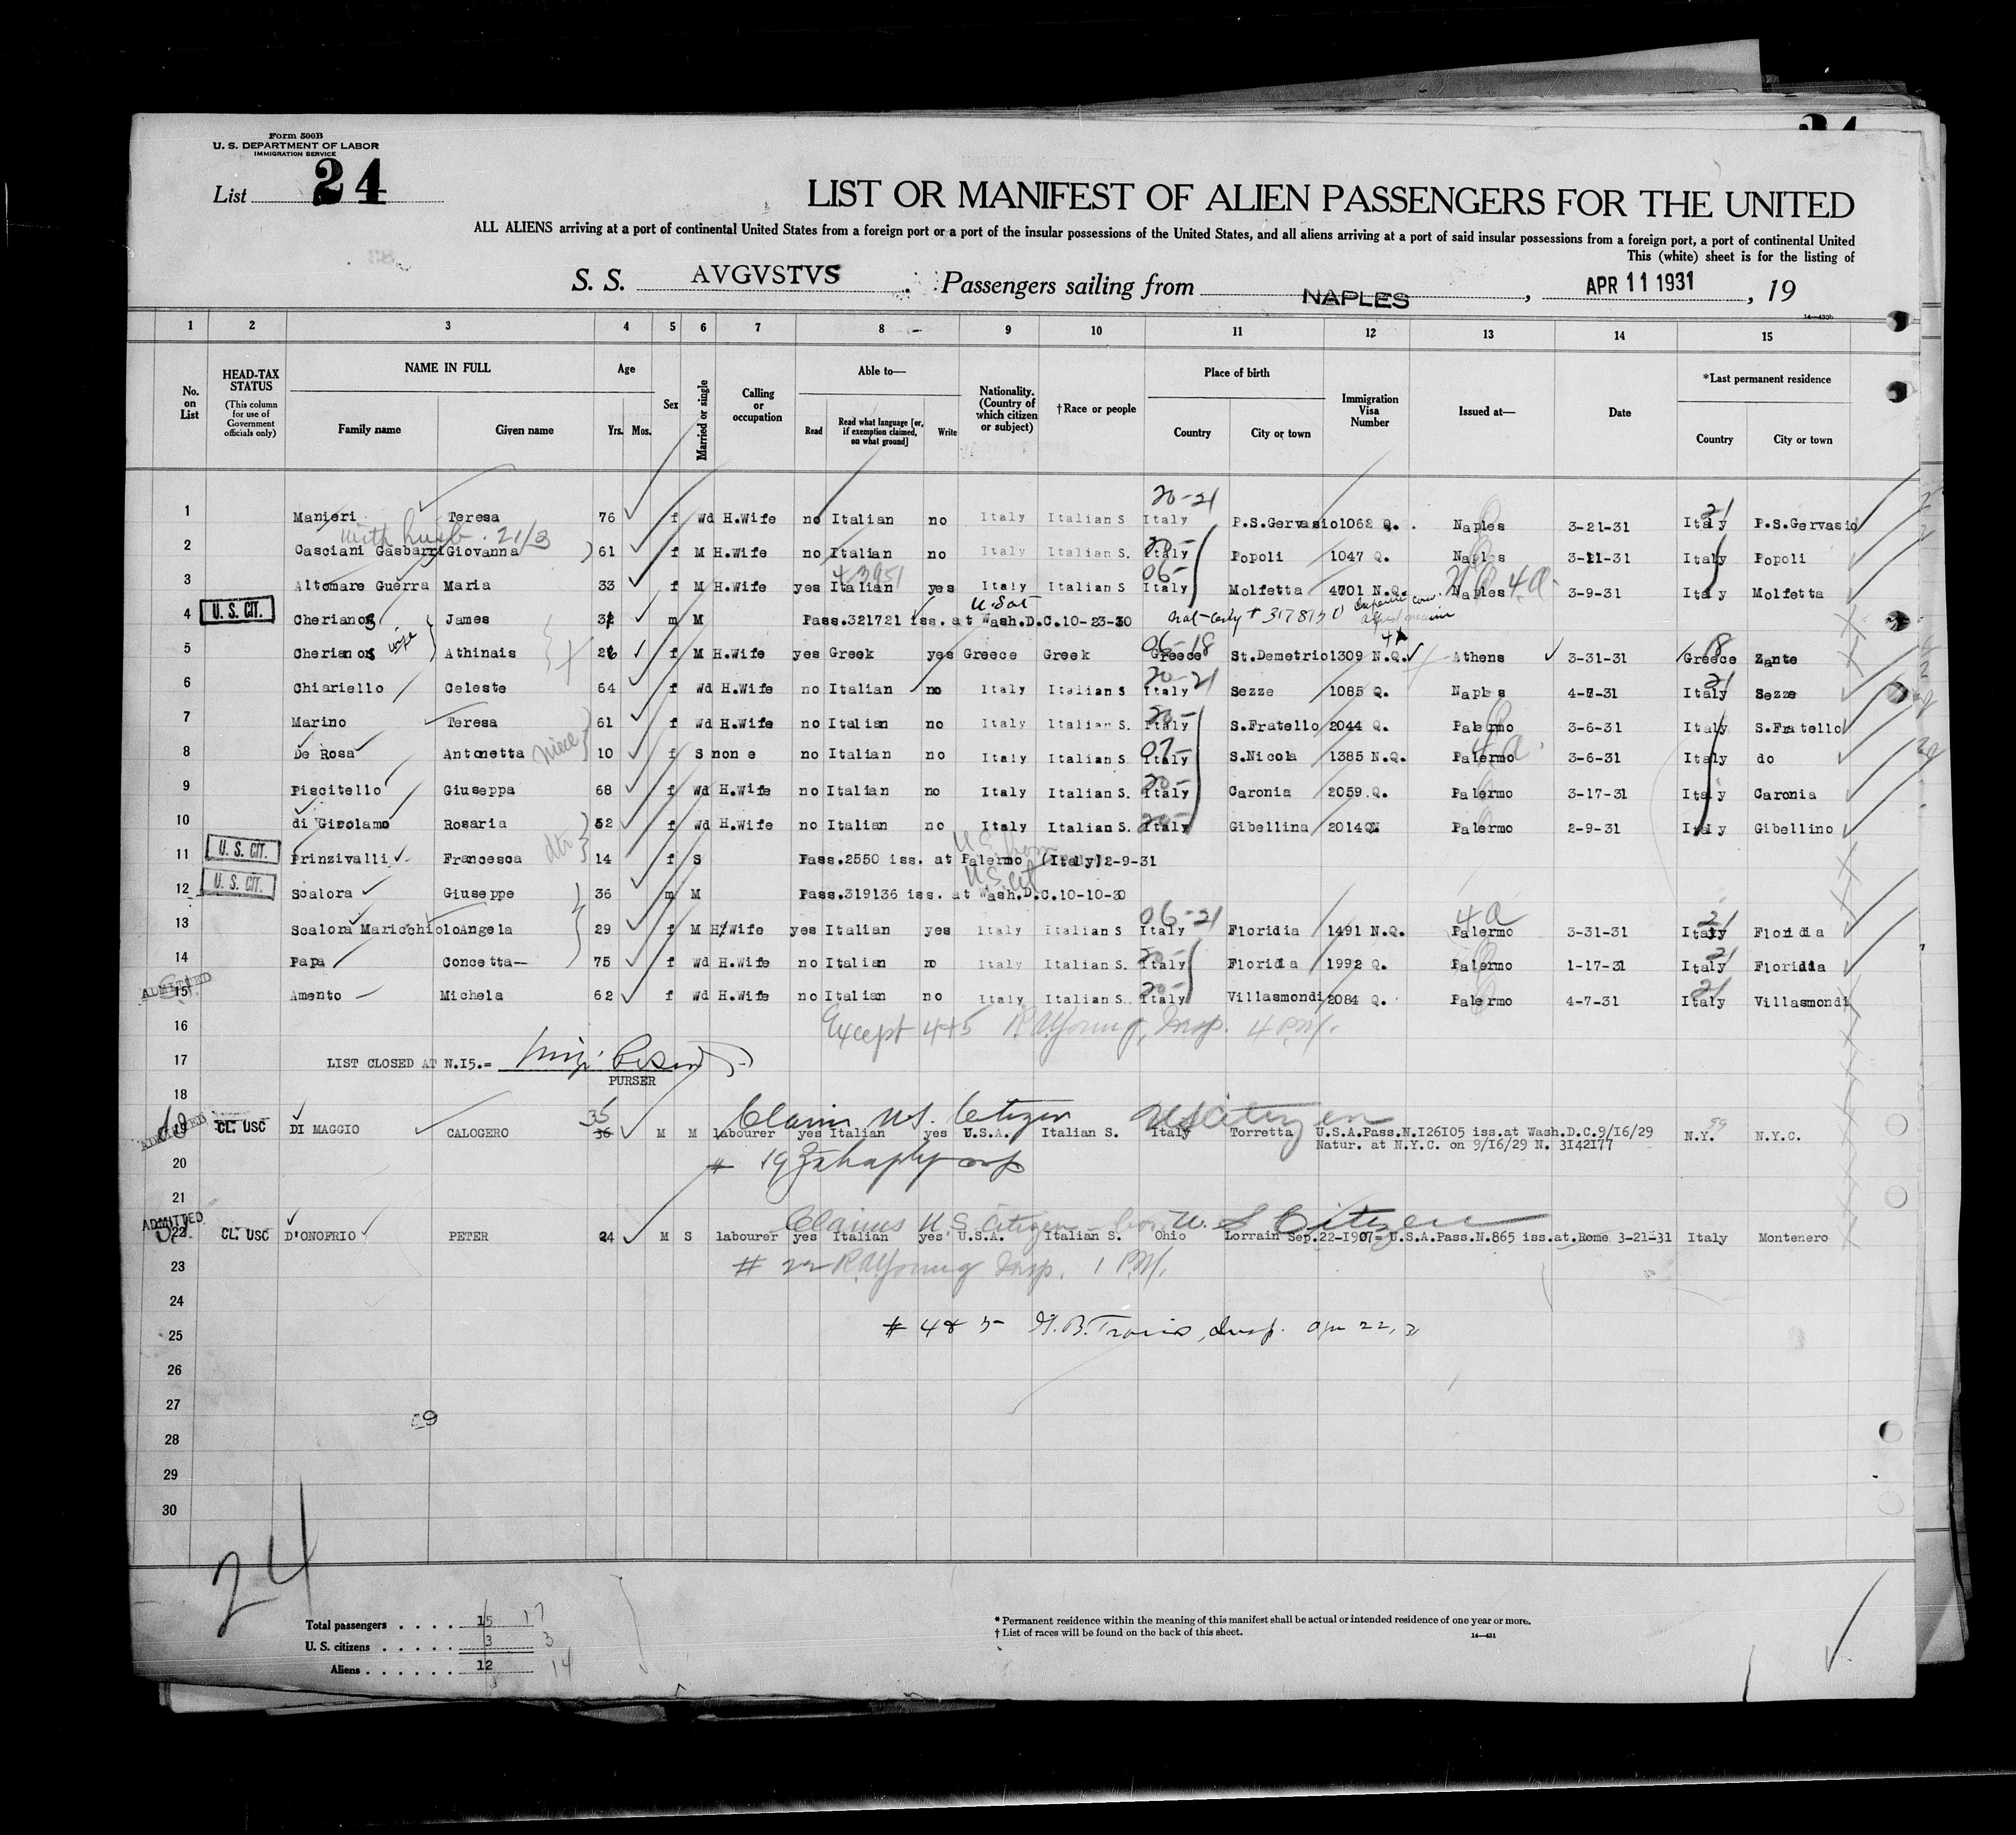 Form 500B
U. S. DEPARTMENT OF LABOR
IMMIGRATION SERVICE
List 24
LIST OR MANIFEST OF ALIEN PASSENGERS FOR THE UNITED
ALL ALIENS arriving at a port of continental United States from a foreign port or a port of the insular possessions of the United States, and all aliens arriving at a port of said insular possessions from a foreign port, a port of continental United
This (white) sheet is for the listing of
S. S. AVGVSTVS Passengers sailing from NAPLES , APR 11 1931 , 19
1 2 3 4 5 6 7 8 9 10 11 12 13 14 15
No. on List
HEAD-TAX STATUS (This column for use of Government officials only)
NAME IN FULL
Family name Given name
Age
Yrs. Mos.
Sex
Married or single
Calling or occupation
Able to—
Read Read what language [or, if exemption claimed, on what ground] Write
Nationality. (Country of which citizen or subject)
†Race or people
Place of birth
Country City or town
Immigration Visa Number
Issued at—
Date
*Last permanent residence
Country City or town
20-21
1 Manieri Teresa 76 f Wd H.Wife no Italian no Italy Italian S Italy P.S.Gervasio 1062 Q. Naples 3-21-31 Italy P.S.Gervasio
with husb. 21/3
2 Casciani Gasbarri Giovanna 61 f M H.Wife no Italian no Italy Italian S. Italy Popoli 1047 Q. Naples 3-21-31 Italy Popoli
3 Altomare Guerra Maria 33 f M H.Wife yes Italian yes Italy Italian S Italy Molfetta 4701 N.Q. Naples 3-9-31 Italy Molfetta
4 U. S. CIT. Cherianos James m M Pass.321721 iss. at Wash.D.C.10-23-30
5 Cherianos wife Athinais 26 f M H.Wife yes Greek yes Greece Greek Greece St.Demetrio 1309 N.Q. Athens 3-31-31 Greece Zante
6 Chiariello Celeste 64 f Wd H.Wife no Italian no Italy Italian S Italy Sezze 1085 Q. Naples 4-7-31 Italy Sezze
7 Marino Teresa 61 f Wd H.Wife no Italian no Italy Italian S. Italy S.Fratello 2044 Q. Palermo 3-6-31 Italy S.Fratello
8 De Rosa Antonetta niece 10 f S none no Italian no Italy Italian S. Italy S.Nicola 1385 N.Q. Palermo 3-6-31 Italy do
9 Piscitello Giuseppa 68 f Wd H.Wife no Italian no Italy Italian S. Italy Caronia 2059 Q. Palermo 3-17-31 Italy Caronia
10 di Girolamo Rosaria 52 f Wd H.Wife no Italian no Italy Italian S. Italy Gibellina 2014 Q. Palermo 2-9-31 Italy Gibellino
11 U. S. CIT. Prinzivalli Francesca dtr 14 f S Pass.2550 iss. at Palermo (Italy)2-9-31
12 U. S. CIT. Scalora Giuseppe 36 m M Pass.319136 iss. at Wash.D.C.10-10-30
13 Scalora Maricchiolo Angela 29 f M H.Wife yes Italian yes Italy Italian S Italy Floridia 1491 N.Q. Palermo 3-31-31 Italy Floridia
14 Papa Concetta 75 f Wd H.Wife no Italian no Italy Italian S. Italy Floridia 1992 Q. Palermo 1-17-31 Italy Floridia
ADMITTED
15 Amento Michela 62 f Wd H.Wife no Italian no Italy Italian S. Italy Villasmondi 2084 Q. Palermo 4-7-31 Italy Villasmondi
16 Except 4+5 R.A.Young, Insp. 4 P.M.
17 LIST CLOSED AT N.I5.=
PURSER
18
Claims U.S. Citizen US Citizen
ADMITTED
19 CL. USC DI MAGGIO CALOGERO 35 36 M M labourer yes Italian yes U.S.A. Italian S. Italy Torretta U.S.A.Pass.N.I26I05 iss.at Wash.D.C.9/16/29 N.Y. N.Y.C.
Natur. at N.Y.C. on 9/16/29 N. 3I42I77
20
21
Claims U S Citizen U. S Citizen
ADMITTED
22 CL. USC D'ONOFRIO PETER 24 M S labourer yes Italian yes U.S.A. Italian S. Ohio Lorrain Sep.22-I907= U.S.A.Pass.N.865 iss.at.Rome 3-21-31 Italy Montenero
23 # 22 R.A.Young Insp. 1 P.M.
24
25 # 4 & 5 Insp. Apr 22, 31
26
27
28
29
30
24
Total passengers . . . . 15 17
U. S. citizens . . . . . 3 3
Aliens . . . . . . 12 14
* Permanent residence within the meaning of this manifest shall be actual or intended residence of one year or more.
† List of races will be found on the back of this sheet.
14—431